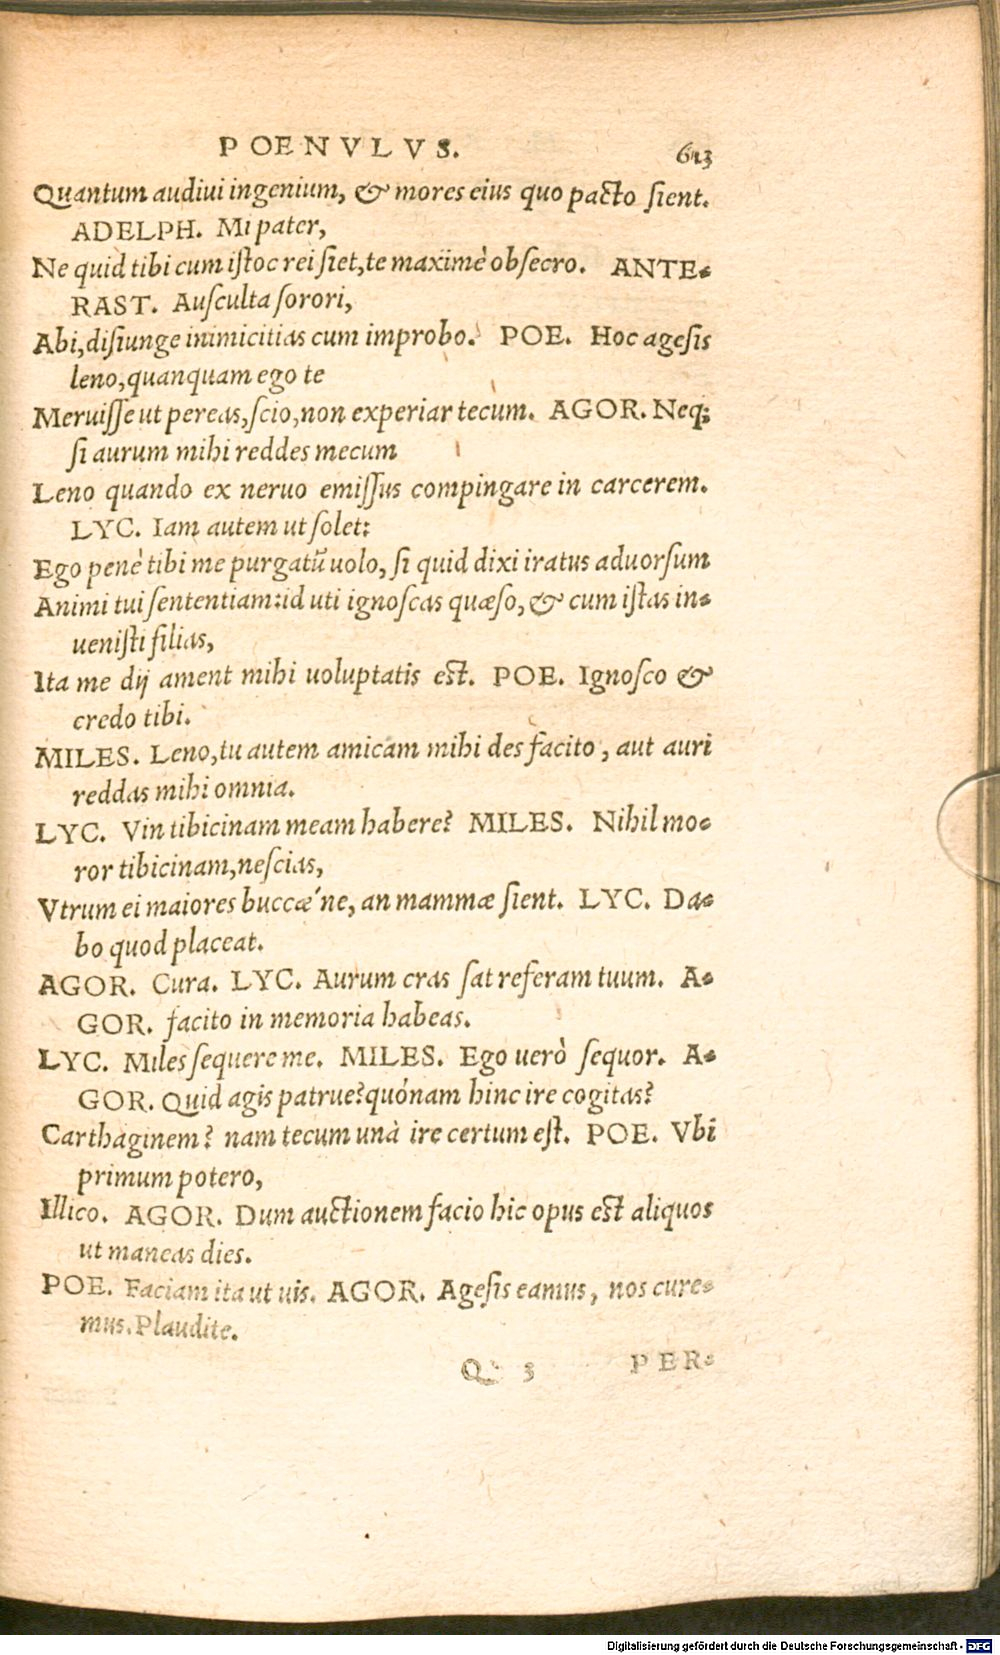 POENVLVS. 613
Quantum audiui ingenium, & mores eius quo pacto sient.
ADELPH. Mi pater,
Ne quid tibi cum istoc rei siet, te maximè obsecro. ANTE-
RAST. Ausculta sorori,
Abi, disiunge inimicitias cum improbo. POE. Hoc agesis
leno, quanquam ego te
Meruisse ut pereas, scio, non experiar tecum. AGOR. Neq;
si aurum mihi reddes mecum
Leno quando ex neruo emissus compingare in carcerem.
LYC. Iam autem ut solet:
Ego penè tibi me purgatū uolo, si quid dixi iratus aduorsum
Animi tui sententiam: id uti ignoscas quæso, & cum istas in-
uenisti filias,
Ita me dij ament mihi uoluptatis est. POE. Ignosco &
credo tibi.
MILES. Leno, tu autem amicam mihi des facito, aut auri
reddas mihi omnia.
LYC. Vin tibicinam meam habere? MILES. Nihil mo-
ror tibicinam, nescias,
Vtrum ei maiores buccæ'ne, an mammæ sient. LYC. Da-
bo quod placeat.
AGOR. Cura. LYC. Aurum cras sat referam tuum. A-
GOR. facito in memoria habeas.
LYC. Miles sequere me. MILES. Ego uerò sequor. A-
GOR. Quid agis patrue? quónam hinc ire cogitas?
Carthaginem? nam tecum unà ire certum est. POE. Vbi
primum potero,
Illico. AGOR. Dum auctionem facio hic opus est aliquos
ut maneas dies.
POE. Faciam ita ut uis. AGOR. Agesis eamus, nos cure-
mus. Plaudite.
Q 3 PER-
Digitalisierung gefördert durch die Deutsche Forschungsgemeinschaft - DFG